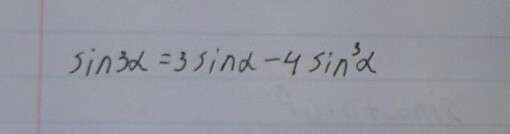 sin3α = 3 sinα − 4 sin³α